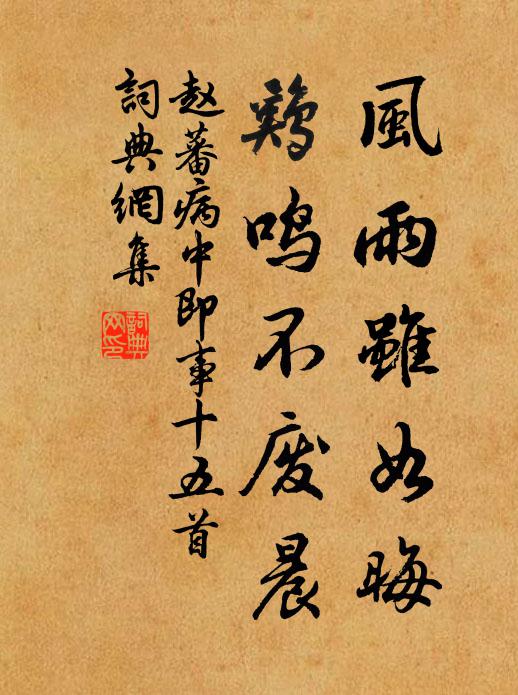 風雨雖如晦
鷄鳴不废晨
赵蕃病中即事十五首
詞典網集
詞典
网印